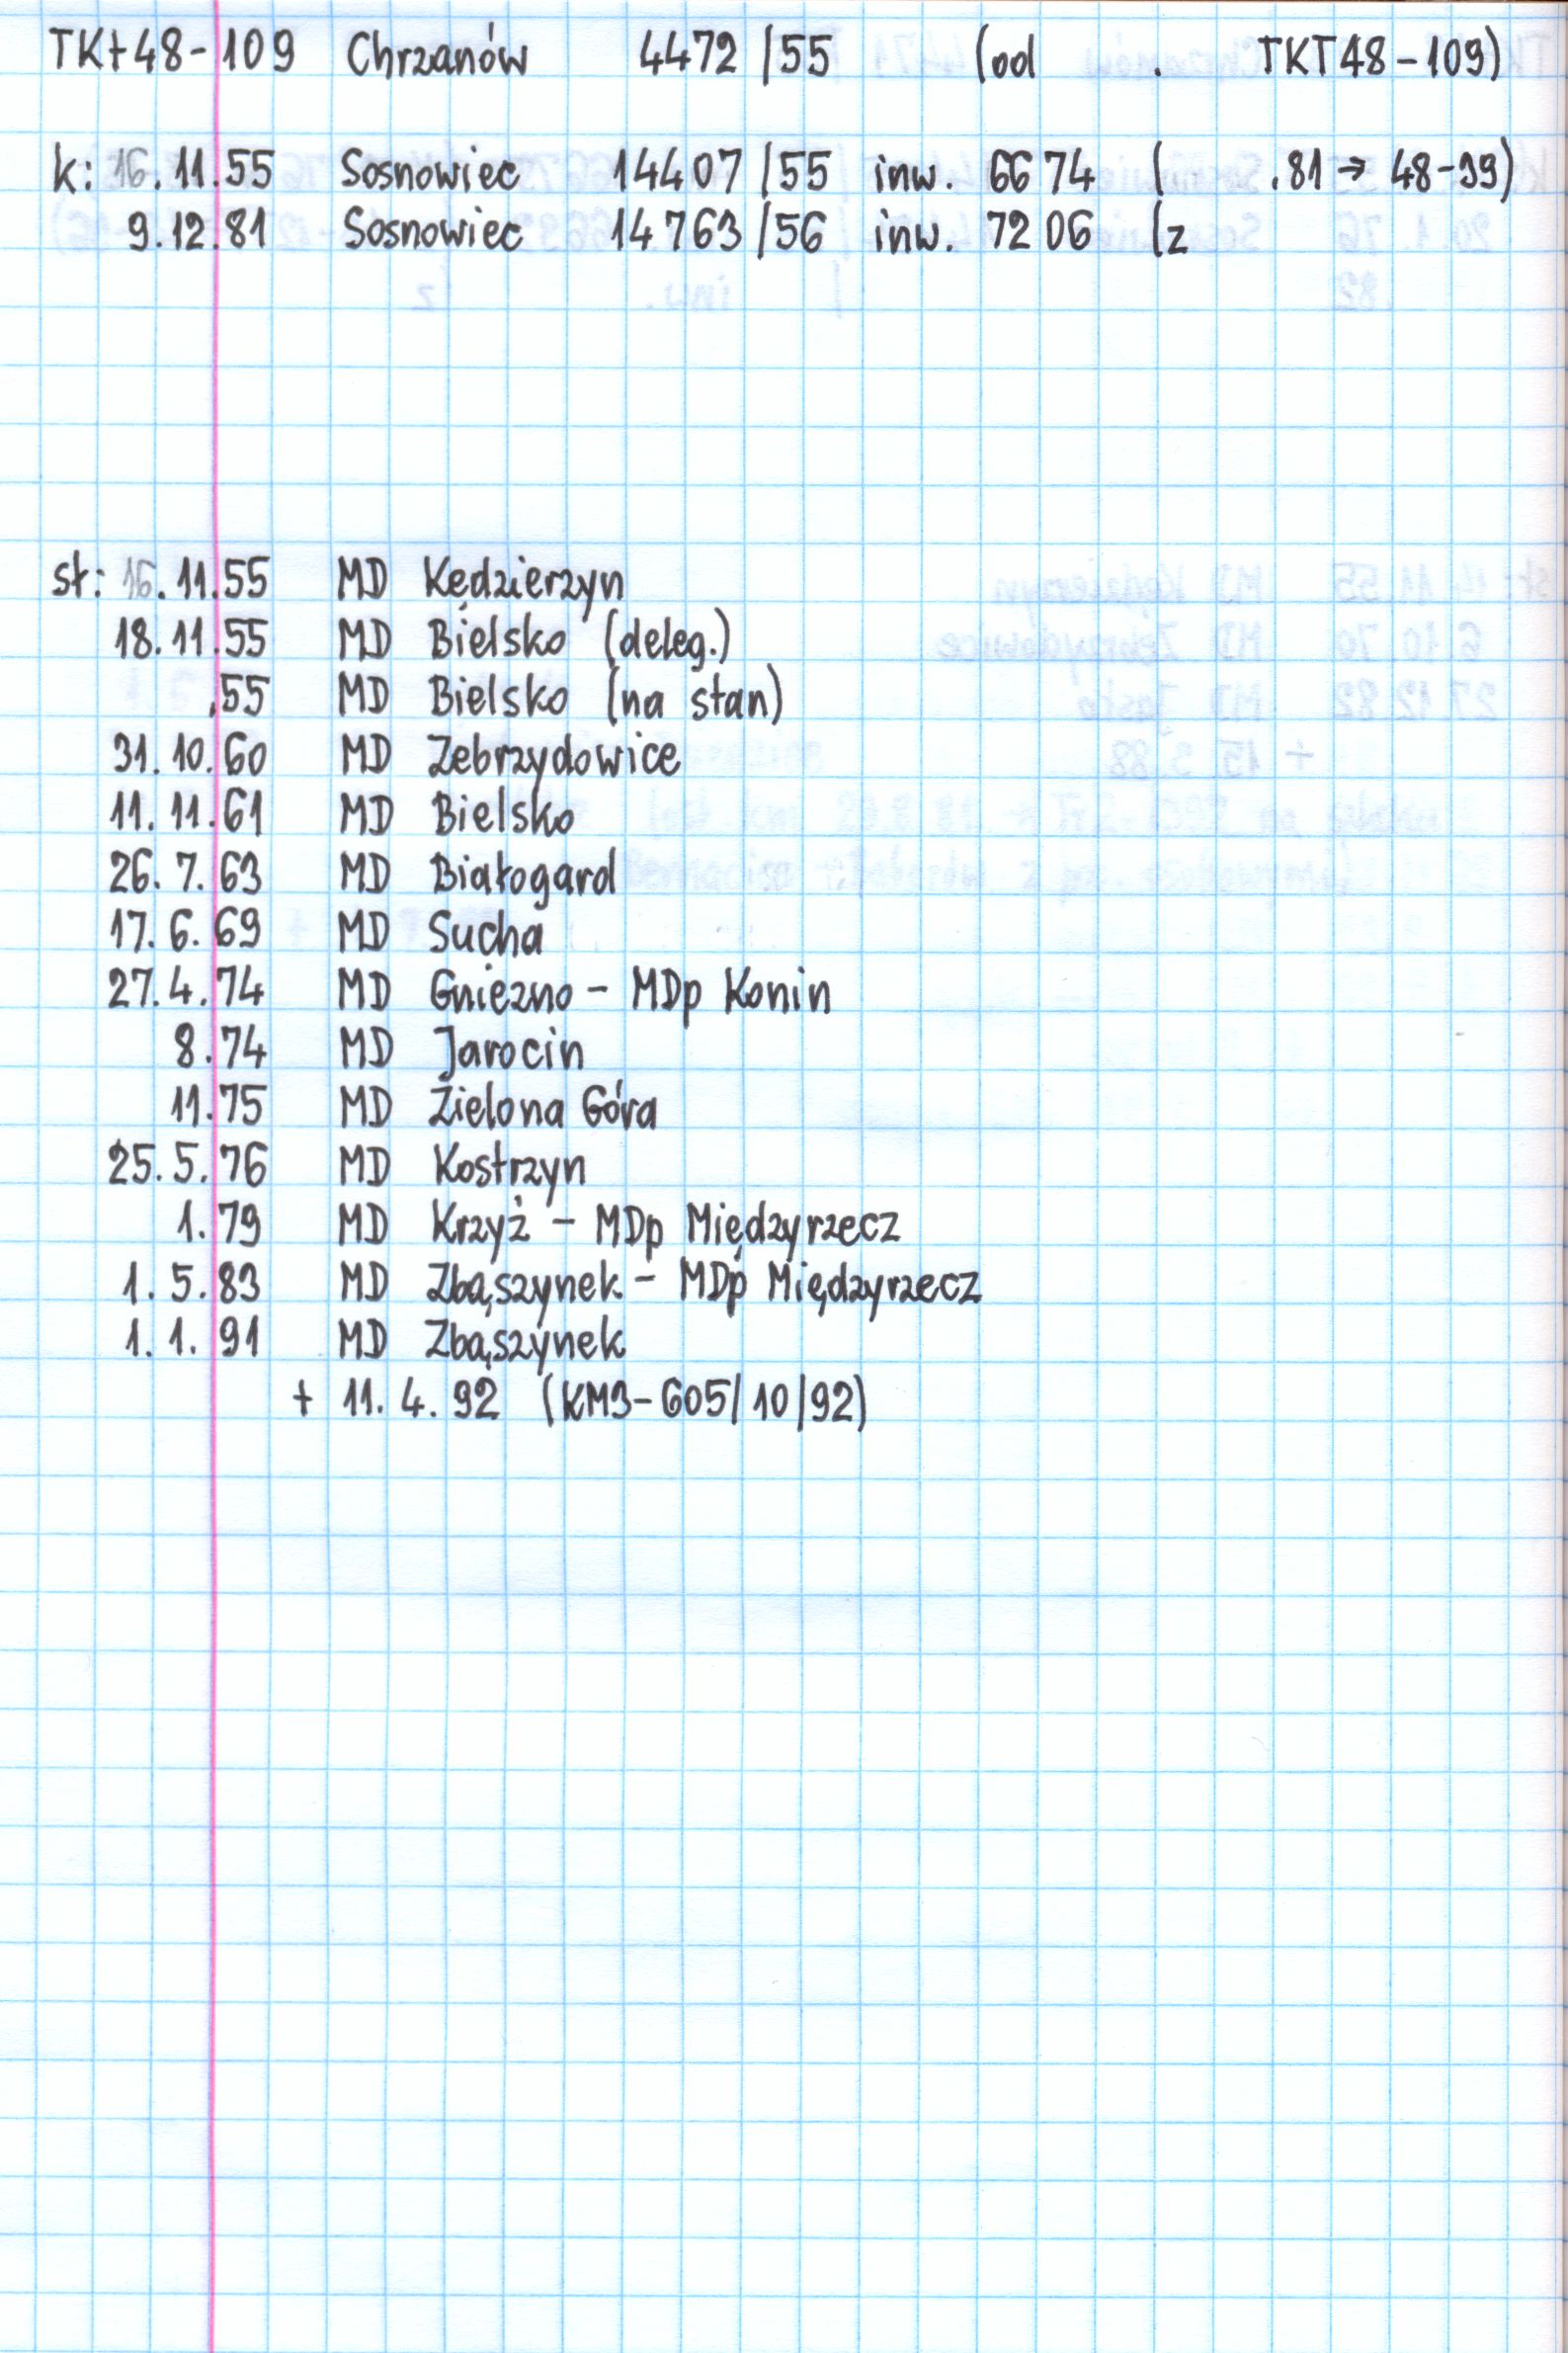 TKt48-109 Chrzanów 4472/55 (od . TKT48-109)
k: 16.11.55 Sosnowiec 14407/55 inw. 6674 ( .81 → 48-99)
9.12.81 Sosnowiec 14763/56 inw. 7206 (z
st: 16.11.55 MD Kędzierzyn
18.11.55 MD Bielsko (deleg.)
.55 MD Bielsko (na stan)
31.10.60 MD Zebrzydowice
11.11.61 MD Bielsko
26.7.63 MD Białogard
17.6.69 MD Sucha
27.4.74 MD Gniezno - MDp Konin
8.74 MD Jarocin
11.75 MD Zielona Góra
25.5.76 MD Kostrzyn
1.79 MD Krzyż - MDp Międzyrzecz
1.5.83 MD Zbąszynek - MDp Międzyrzecz
1.1.91 MD Zbąszynek
+ 11.4.92 (KM3-605/10/92)